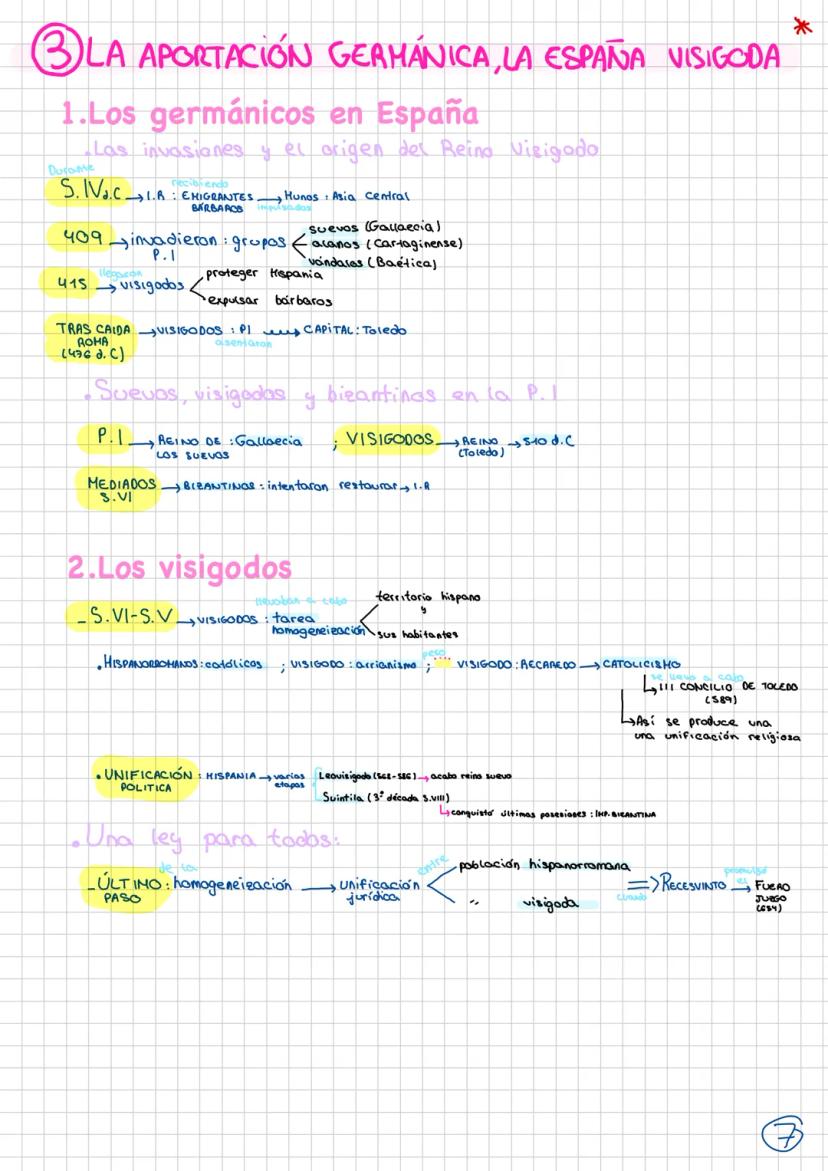 *
③ LA APORTACIÓN GERMÁNICA, LA ESPAÑA VISIGODA
1.Los germánicos en España
.Las invasiones y el origen del Reino Visigodo
Durante
S.IV d.C → I.R : EMIGRANTES BÁRBAROS recibiendo impulsados → Hunos : Asia Central
409 → invadieron P.I : grupos < suevos (Gallaecia)
alanos (Cartaginense)
vándalos (Baética)
415 → llegaron visigodos < proteger Hispania
expulsar bárbaros
TRAS CAIDA ROMA (476 d.C) → VISIGODOS : PI asentaron → CAPITAL: Toledo
.Suevos, visigodos y bizantinos en la P.I
P.I → REINO DE LOS SUEVOS : Gallaecia ; VISIGODOS → REINO (Toledo) → 510 d.C
MEDIADOS S.VI → BIZANTINOS : intentaron restaurar → I.R
2.Los visigodos
_S.VI-S.V → VISIGODOS : llevaban a cabo tarea homogeneización < territorio hispano
y
sus habitantes
.HISPANORROMANOS: católicos ; VISIGODO : arrianismo ; pero VISIGODO : RECAREDO → CATOLICISMO
se llevo a cabo
↳ III CONCILIO DE TOLEDO (589)
↳ Así se produce una
una unificación religiosa
. UNIFICACIÓN POLITICA : HISPANIA → varias etapas
Leovigildo (568-586) → acabo reino suevo
Suintila (3ª década S.VIII)
↳ conquistó últimas posesiones : IMP. BIZANTINA
.Una ley para todos:
_ÚLTIMO PASO : de la homogeneización → unificación jurídica entre < población hispanorromana
" visigoda
=> cuando RECESVINTO → promulgó el FUERO JUZGO (654)
7